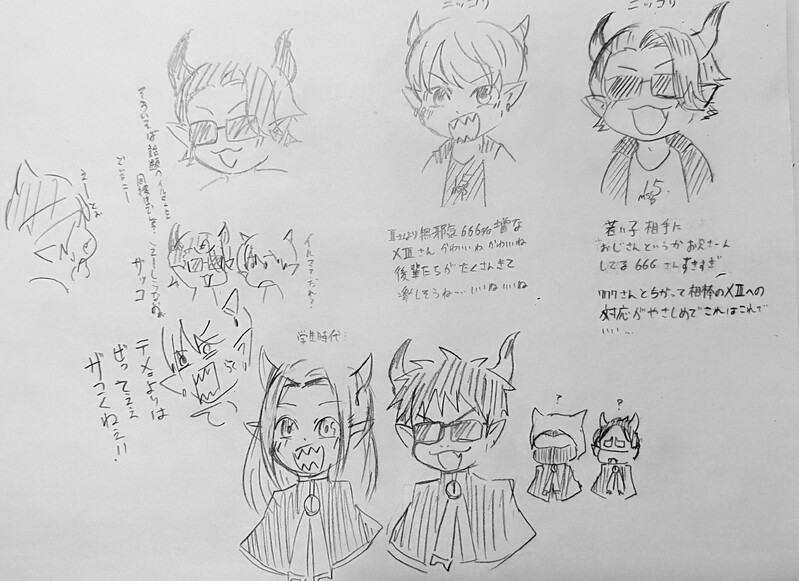 ニッコリ
ニッコリ
そういえば話題のイルミって
えーとぉ
ザッコ
イルマてだれ?
テメェよりは
ぜってェェ
ザコくねェ!!
Ⅲさんより無邪気666%増な
XⅢさん かわいいね かわいいね
後輩たちがたくさんきて
楽しそうね…いいねいいね
若い子相手に
おじさんというかお兄さーん
してる 666 さんすきすぎ
さんとちがって相棒のXⅢへの
対応がやさしめでこれはこれで
いい…
学生時代
?
?